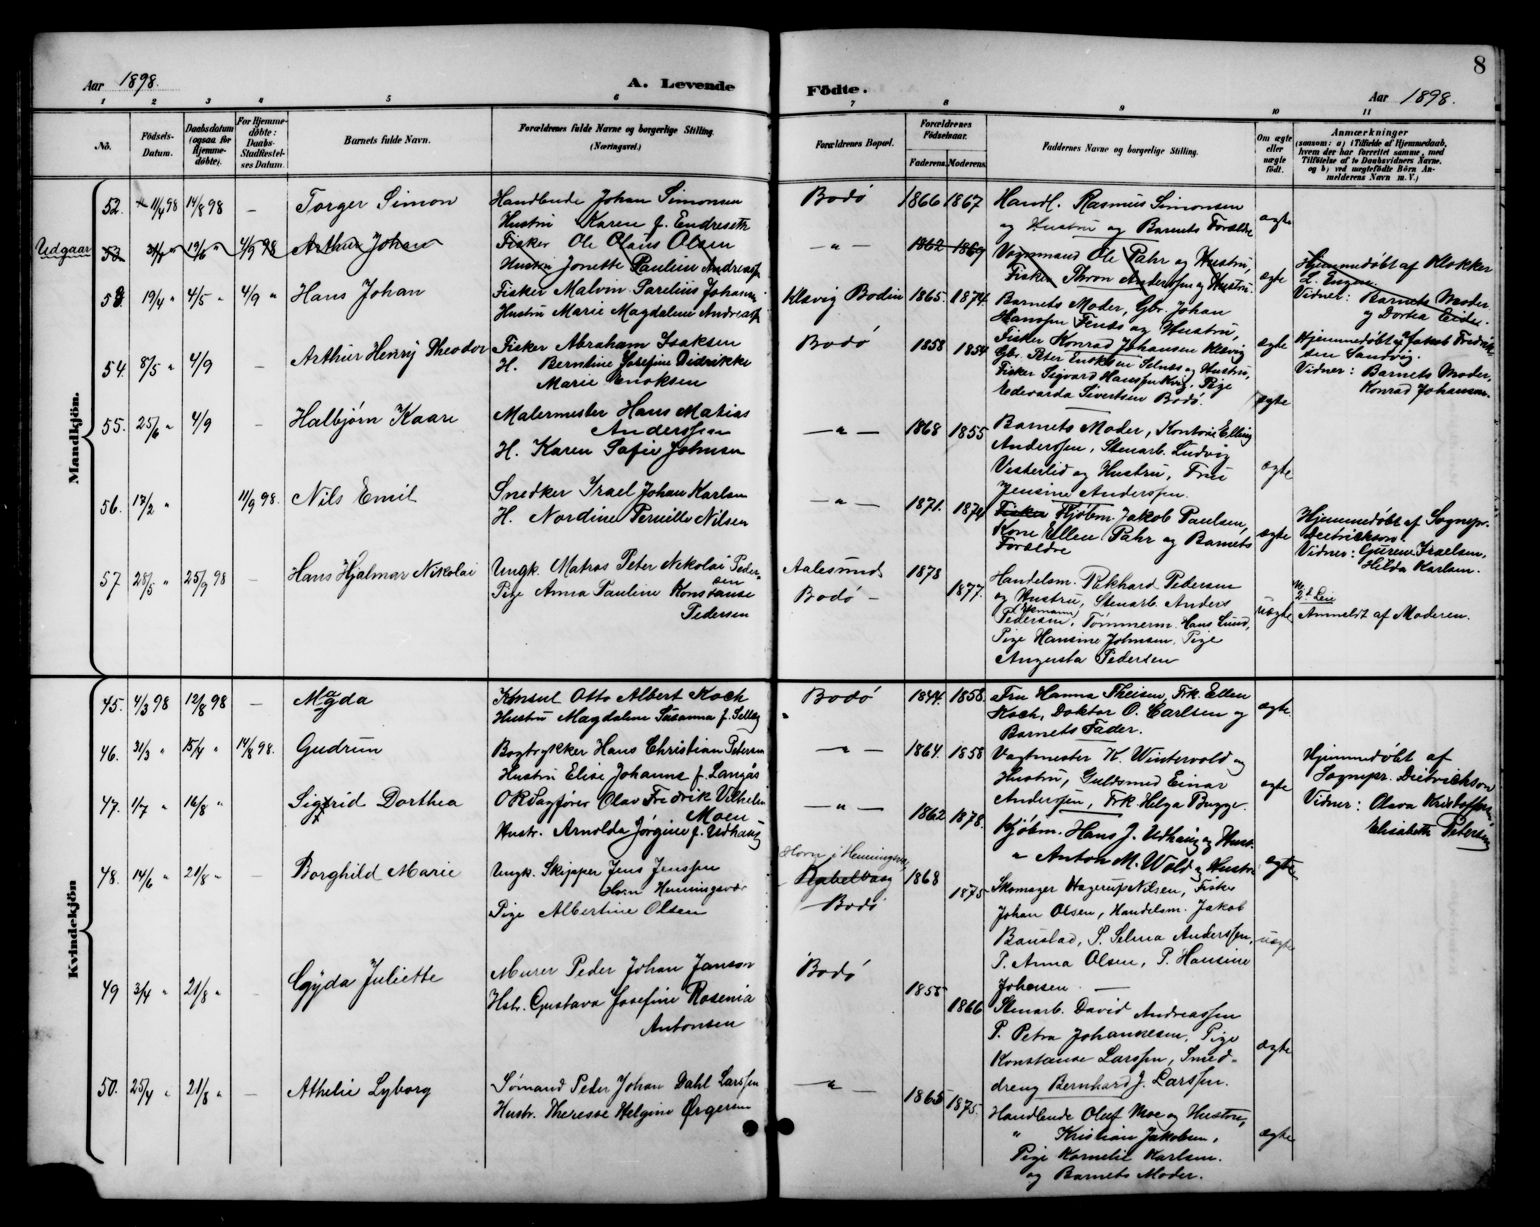 Aar 1898.
A. Levende
Födte.
Aar 1898.
8
1 2 3 4 5 6 7 8 9 10 11
No.
Födsels-Datum.
Daabsdatum (ogsaa for Hjemmedöbte).
For Hjemmedöbte: Daabs Stadfæstelses Datum.
Barnets fulde Navn.
Forældrenes fulde Navne og borgerlige Stilling. (Næringsvei.)
Forældrenes Bopæl.
Forældrenes Födselsaar.
Faderens. Moderens.
Faddernes Navne og borgerlige Stilling.
Om ægte eller uægte födt.
Anmærkninger
(saasom: a) i Tilfælde af Hjemmedaab, hvem der har forrettet samme, med Tilföielse af to Daabsvidners Navne. og b) ved uægtefödte Börn Anmelderens Navn m. V.)
Mandkjön.
52. 11/4 98 14/8 98 — Torger Simon
Handlende Johan Simonsen
Hustru Karen f. Endreseth
Bodö 1866 1867
Handl. Rasmus Simonsen
og Hustru og Barnets Forældre
ægte
Udgaar
53 31/1 " 19/6 " 4/9 98 Arthur Johan
Fisker Ole Olaus Olsen
Hustru Jonette Pauline Andreassen
— " — 1862 1869
Vognmand Ole Pahr og Hustru,
Fisker Thron Anderssen og Hustru
ægte
Hjemmedöbt af Klokker
L. Engen
Vidner: Barnets Moder
og Dortea Eider.
53 19/4 " 4/5 " 4/9 " Hans Johan
Fisker Malvin Parelius Johans.
Hustru Marie Magdalene Andreass.
Klavig Bodin 1865. 1874.
Barnets Moder, Gbr. Johan
Hanssen Fenes og Hustru,
Fisker Konrad Johansen Klavig
ægte
Hjemmedöbt af Jakob Fredriksen
Sandvig.
Vidner: Barnets Moder,
Konrad Johansen.
54. 8/5 " 4/9 Arthur Henry Theodor
Fisker Abraham Isaksen
H. Berntine Josefine Didrikke
Marie Enoksen
Bodö 1858 1854
Gbr. Peter Enoksen Selnes og Hustru,
Fisker Sigvard Hanssen Pige
Edevarda Sivertsen Bodö.
ægte
55. 25/6 " 4/9 — Halbjörn Kaare
Malermester Hans Matias
Anderssen
H. Karen Sofie Johnsen
— " — 1868 1855
Barnets Moder, Elling
Anderssen, Stenarb. Ludvig
Vesterlid og Hustru, Frue
Jensine Anderssen.
ægte
56. 17/2 " 11/9 98. Nils Emil
Snedker Israel Johan Karlsen
H. Nordine Pernille Nilsen
— " — 1871. 1874
Fisker Kjöbm. Jakob Paulsen,
Kone Ellen Pahr og Barnets
Forældre
ægte
Hjemmedöbt af Sognepr.
Dietrichson.
Vidner: Guren Israelsen,
Hilda Karlsen.
57 28/5 " 25/9 98 — Hans Hjalmar Nikolai
Ungk. Matros Peter Nikolai Pedersen
Pige Anna Pauline Konstanse
Pedersen
Aalesund
Bodö — 1878 1877.
Handelsm. Rikhard Pedersen
og Hustru, Stenarb. Anders
Pedersen, Tömmerm. Hans Lund,
Pige Hansine Johnsen, Pige
Augusta Pedersen
uægte
2d Leie
Anmeldt af Moderen.
Kvindekjön
45. 4/3 98 12/8 98 — Magda
Konsul Otto Albert Koch
Hustru Magdalene Susanna f. Selleg
Bodö 1844. 1858.
Fru Hanna Theisen, Frk. Ellen
Koch, Doktor O. Carlsen og
Barnets Fader.
ægte
46. 31/3 " 15/4 " 14/8 98. Gudrun
Bogtrykker Hans Christian Petersen
Hustru Elise Johanne f. Langås
— " — 1864. 1858
Vagtmester K. Wintervold og
Hustru, Guldsmed Einar
Anderssen, Frk. Helga Bugge.
ægte
Hjemmedöbt af
Sognepr. Dietrichson
Vidner: Olava Kristoffersen,
Elisabeth Petersen
47. 1/7 " 16/8 " Sigrid Dorthea
ORSagförer Olav Fredrik Vilhelm
Moen
Hustr. Arnolda Jörgine f. Udhaug
— " — 1862 1878.
Kjöbm. Hans J. Udhaug og Hust.
" Anton M. Wold og Hustru
ægte
48. 14/6 " 21/8 " — Borghild Marie
Ungk. Skipper Jens Jenssen
Horn Henningsvær
Pige Albertine Olsen
Horn i Henningsvær,
Kabelvaag
Bodö 1868 1875
Skomager Hagerup Nilsen, Fisker
Johan Olsen, Handelsm. Jakob
Baustad, P. Selma Anderssen,
P. Anna Olsen, P. Hansine
Johansen. —
uægte
49 3/4 " 21/8 " — Gyda Juliette
Murer Peder Johan Janson
Hstr. Gustava Josefine Rosenia
Antonsen
Bodö 1855 1866
Stenarb. David Andreassen
P. Petra Johannesen, Pige
Konstanse Larssen, Smed-
dreng Bernhard J. Larssen.
ægte
50. 25/4 " 21/8 " — Athelie Lyborg
Sömand Peder Johan Dahl Larssen
Hustr. Theresse Helgine Örgersen
— " — 1865 1875.
Handlende Oluf Moe og Hustru,
" Kristian Jakobsen,
Pige Kornelie Karlsen.
og Barnets Moder.
ægte